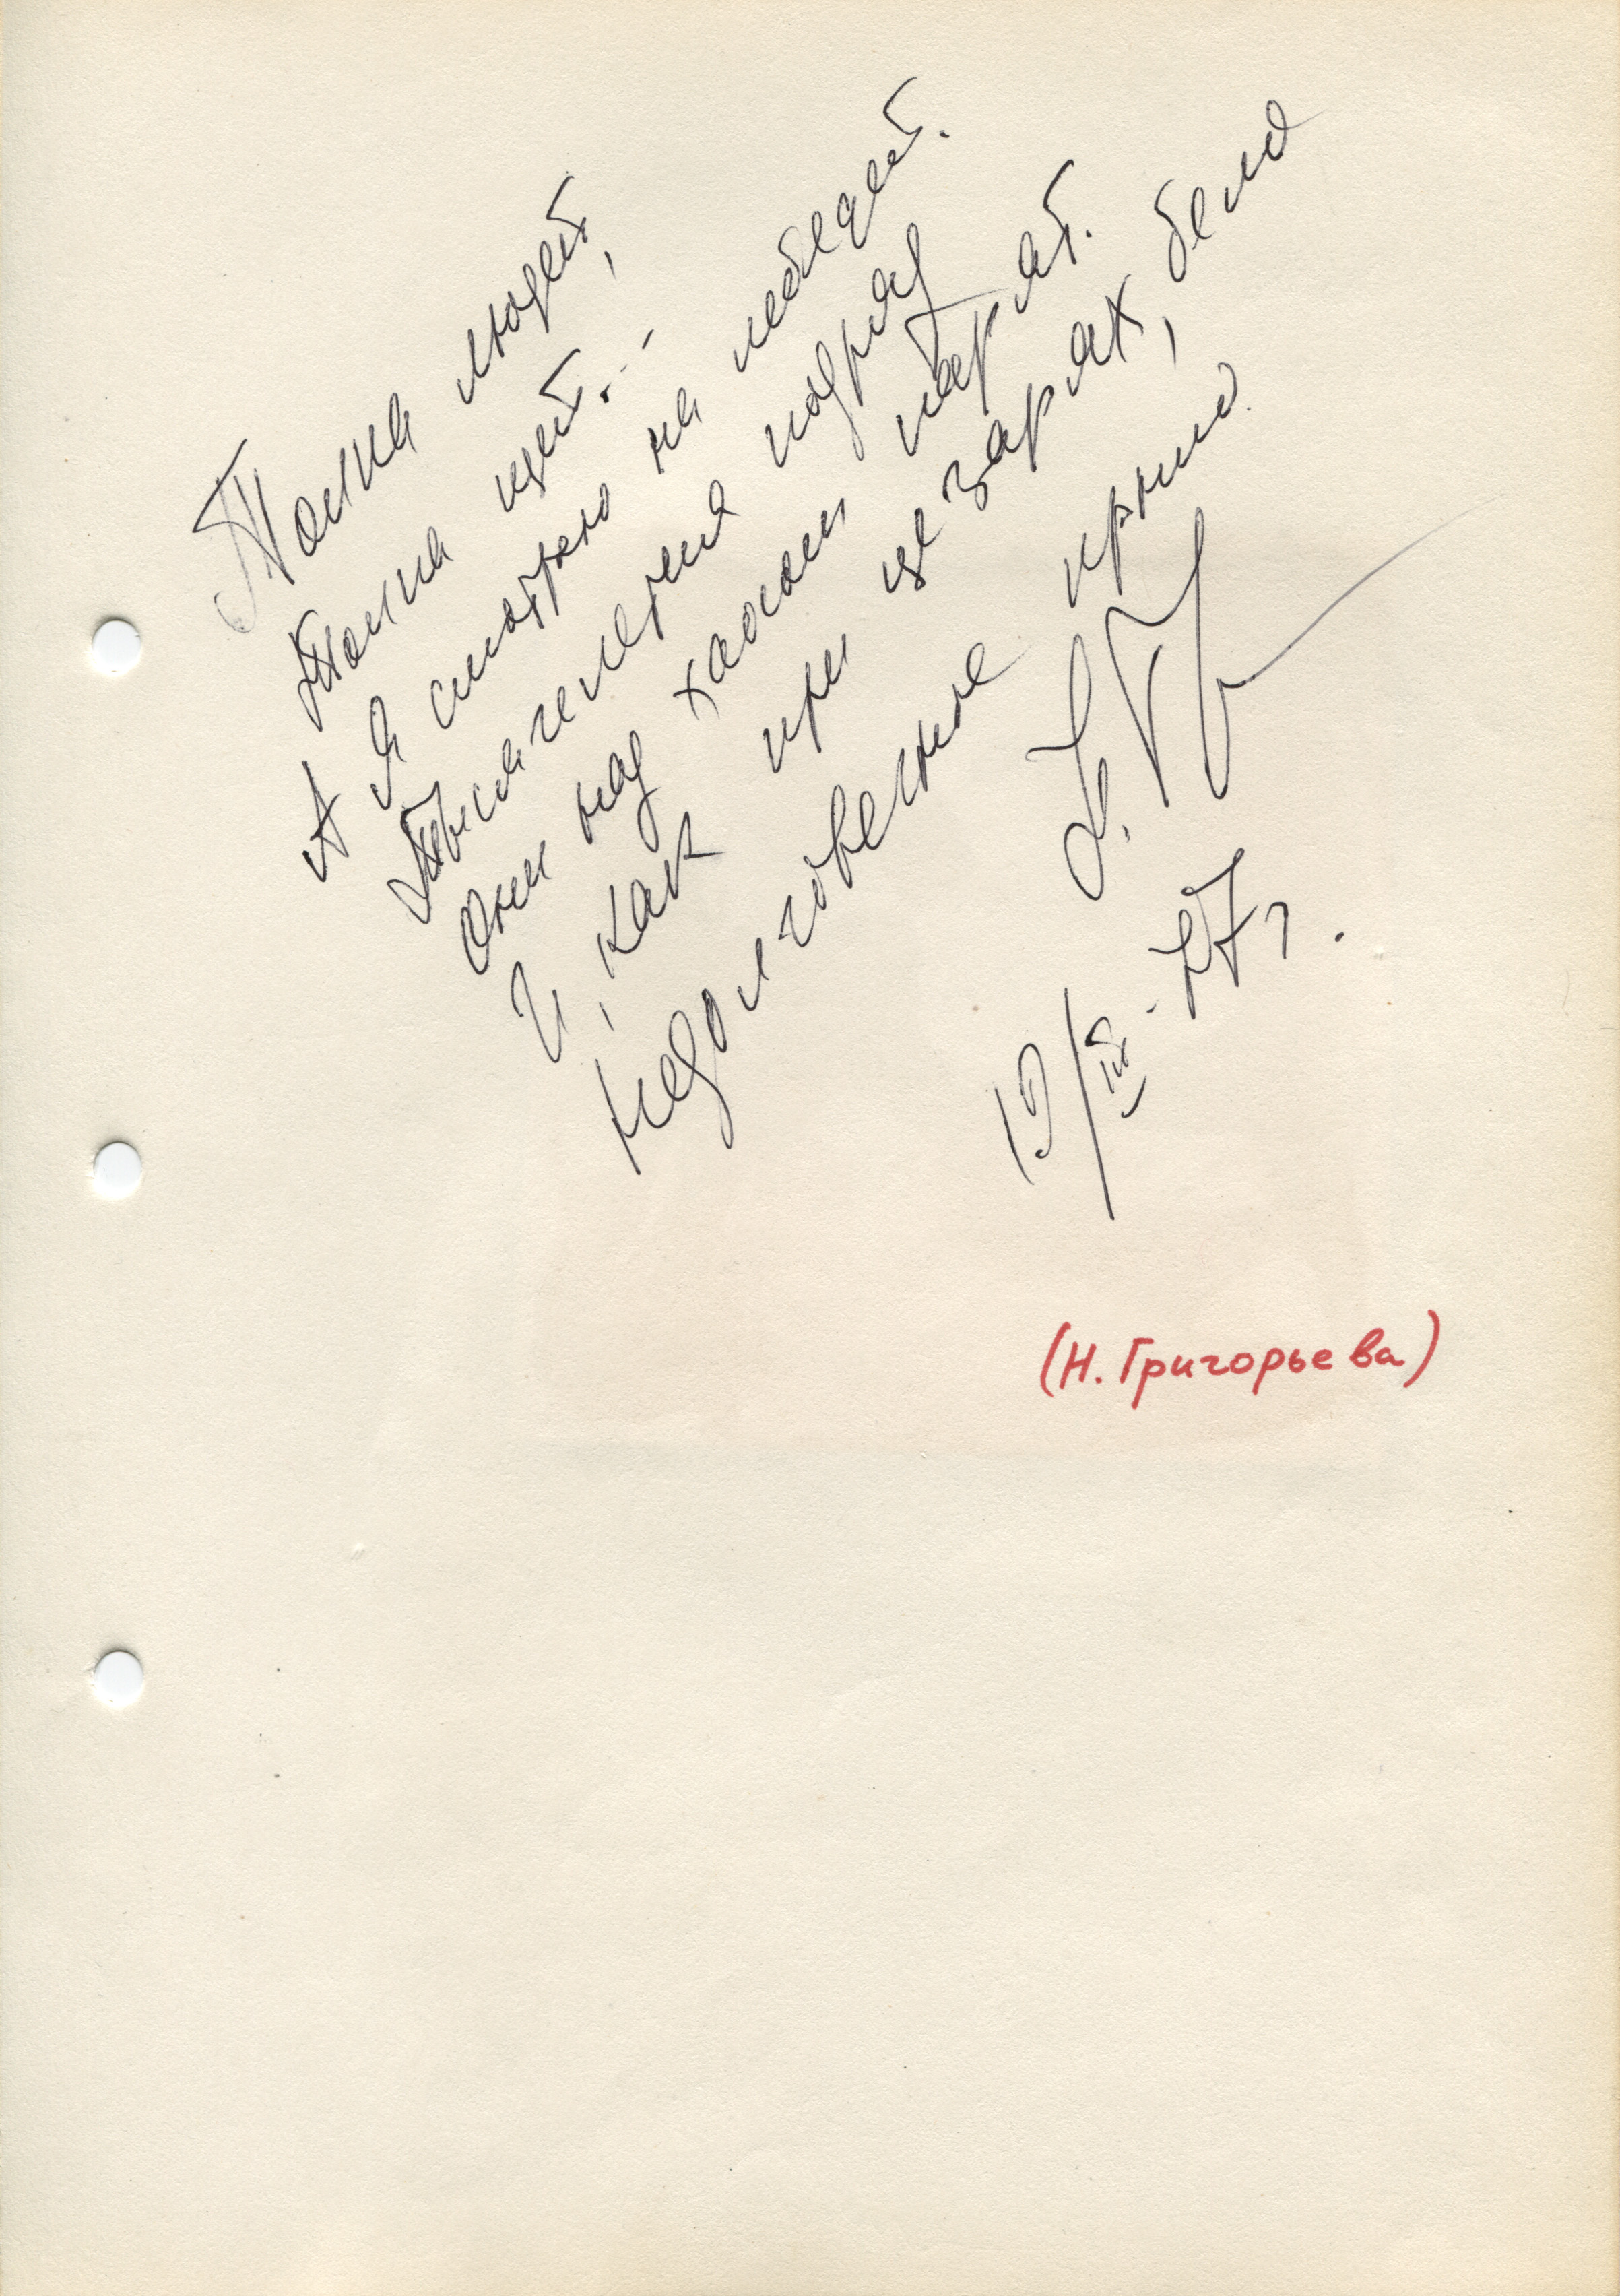 Толпа людей,
Толпа идей...
А я смотрю на лебедей.
Тысячелетия подряд
Они над хаосом парят.
И, как при цезарях, бело
Недолговечное крыло.
Н. Гр
19/III-77г.
(Н. Григорьева)